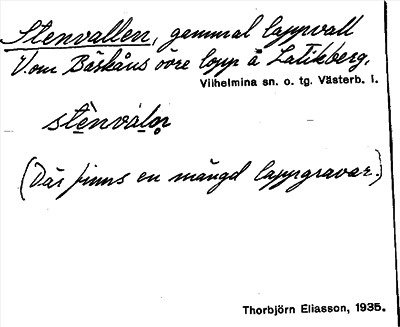 Stenvallen, gammal lappvall
V. om Bäskåns övre lopp å Latikberg,
Vilhelmina sn. o. tg. Västerb. l.
stènválọṇ
(Där finns en mängd lappgravar.)
Thorbjörn Eliasson, 1935.